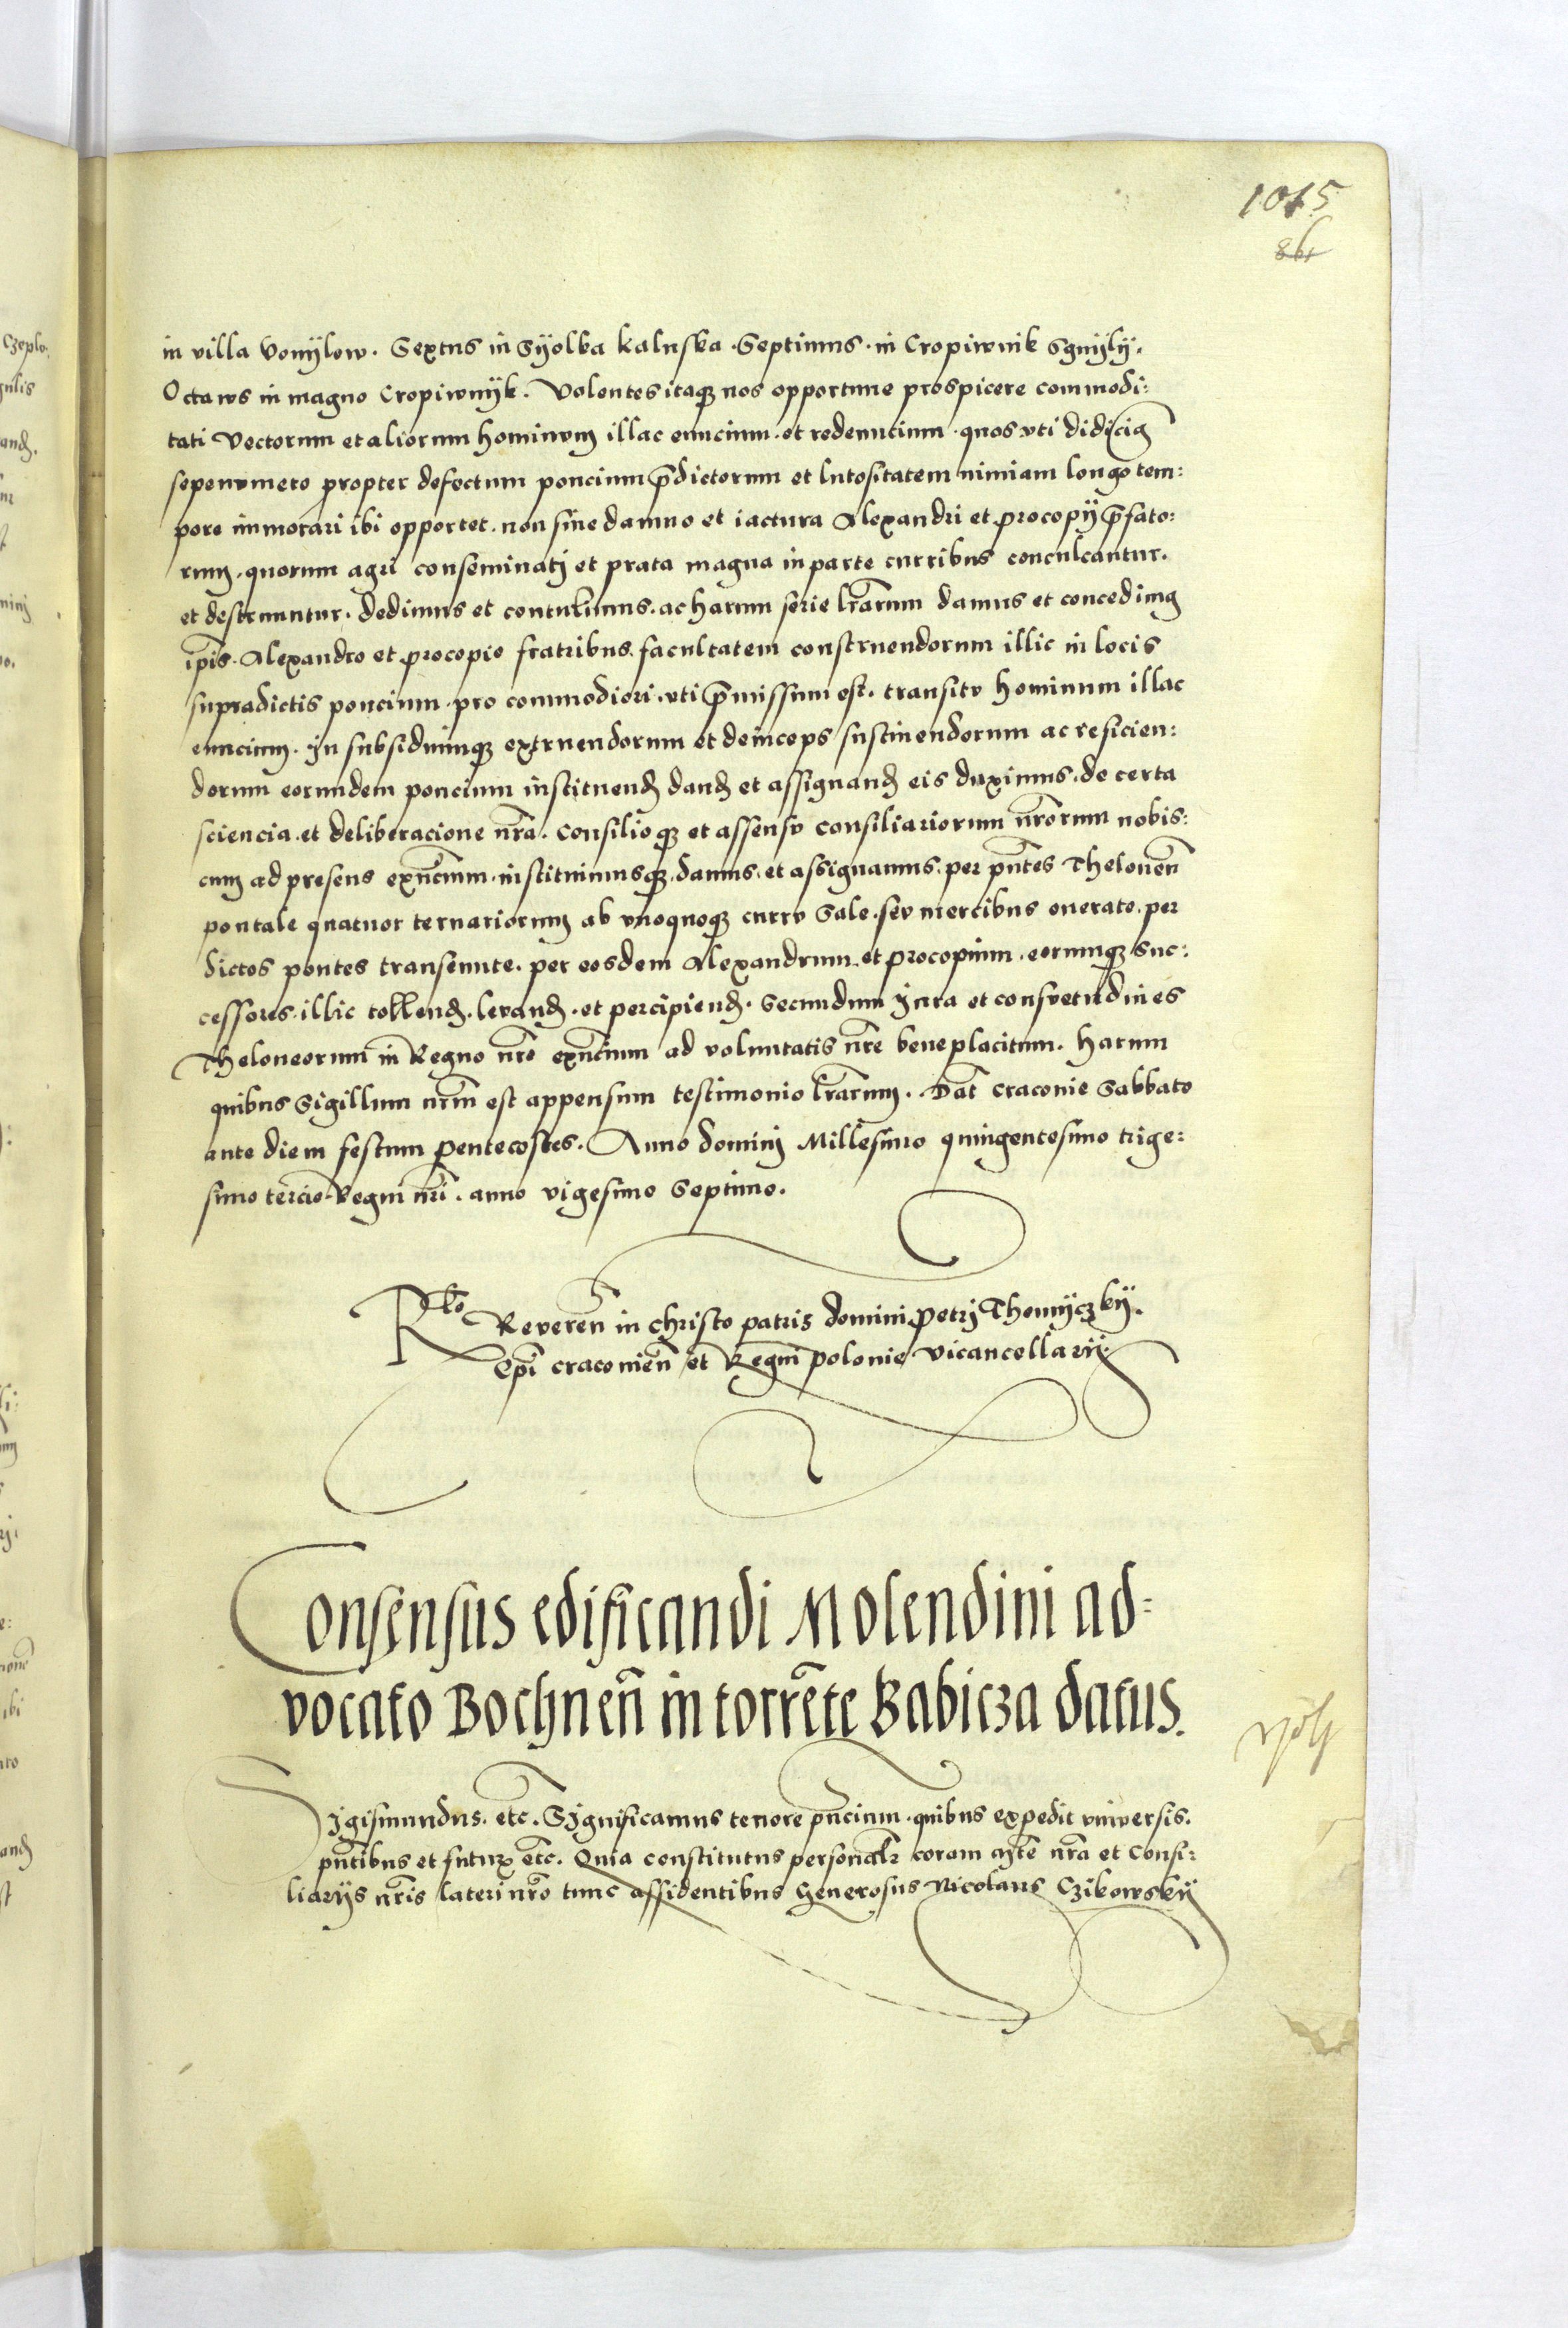 1015
in villa Vonÿlow. Sextus in Sÿolka kaluska. Septimus. in Cropiwnik Sgnÿlÿ.
Octaws in magno Cropiwnÿk. Volentes itaqꝫ nos opportune prospicere commodi:
tati Vectorum et aliorum hominum illac euncium. et redeuncium. quos vti didicimꝰ
sepenumero propter defectum poncium p̃dictorum et lutositatem nimiam longo tem:
pore immorari ibi opportet. non sine damno et iactura Alexandri et procopÿ p̃fato:
rum. quorum agri conseminatj et prata magna in parte curribus conculcantur.
et destruuntur. dedimus et contulimus. ac harum serie lr̃arum damus et concedimꝰ
ip̃is. Alexandro et procopio fratribus. facultatem construendorum illic in locis
supradictis poncium. pro commodiori. vti p̃missum est. transitv hominum illac
euncium. In subsidiumqꝫ extruendorum et deinceps sustinendorum ac reficien:
dorum eorundem poncium instituenđ danđ et assignanđ eis duximus. de certa
sciencia. et deliberacione nr̃a. consilioqꝫ et assensv consiliariorum nr̃orum nobis:
cum ad presens exñcium. instituimusqꝫ. damus. et assignamus. per pñtes Theloneũ
pontale quatuor ternariorum ab vnoquoqꝫ currv Sale. sev mercibus onerato. per
dictos pontes transeunte. per eosdem Alexandrum et procopium. eorumqꝫ suc:
cessores. illic tollenđ. levanđ. et percipienđ. Secundum Jura et consvetudines
Theloneorum in Regno nr̃o exñcium ad voluntatis nr̃e beneplacitum. harum
quibus Sigillum nr̃m est appensum testimonio lr̃arum. Dat̃ craconie Sabbato
ante diem festum pentecostes. Anno dominj Millesimo quingentesimo trige:
simo tercio. Regni nr̃i. anno vigesimo Septimo.
R̃lo Reveren̄ in christo patris domini petrj Thomÿczkÿ.
Ep̃i craconien̄ et Regni polonie vicancellarÿ.
Consensus edificandi Molendini ad:
vocato Bochnen̄ in torrẽte Babicza datus.
Sigismundus. etc̃. Significamus tenore pñcium. quibus expedit vniversis.
pñtibus et futurꝭ etc̃. Quia constitutus personalr̃ coram Mt̃e nr̃a et Consi:
liarÿs nr̃is lateri nr̃o tunc assidentibus Generosus Nicolaus Czikowskÿ